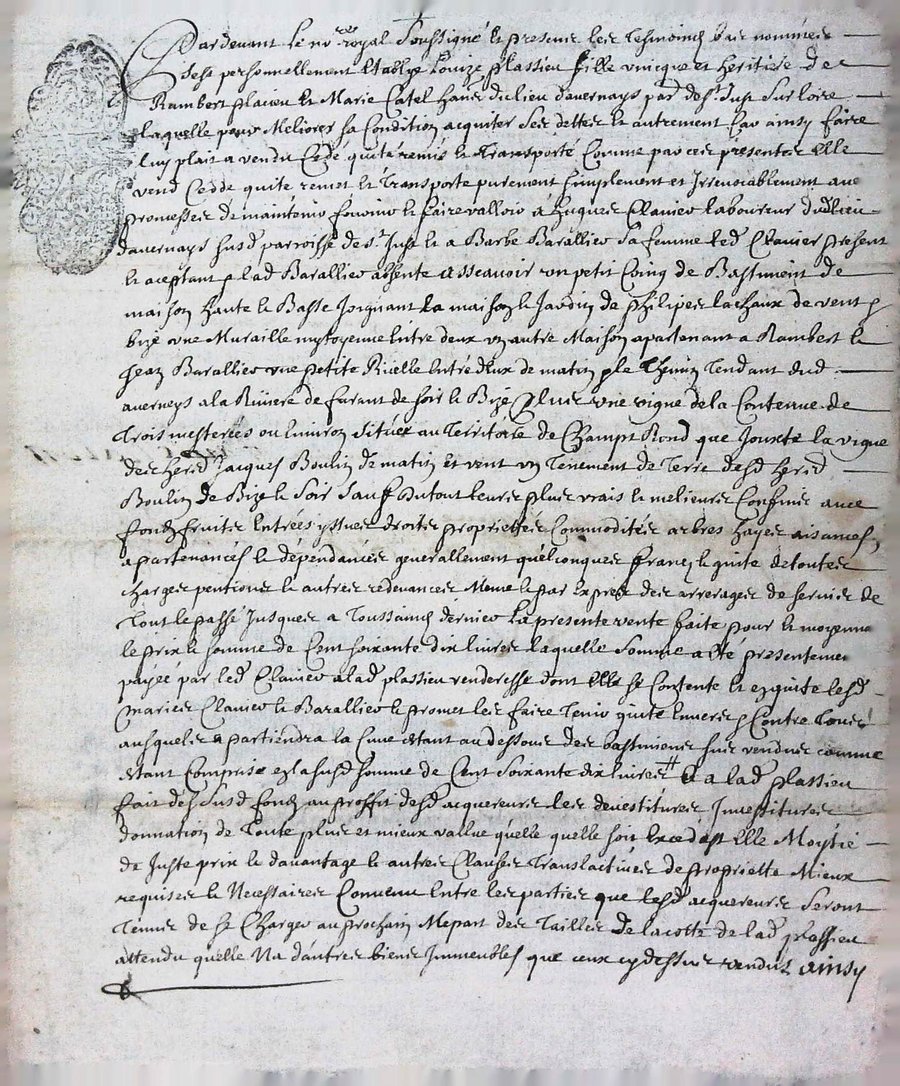 Pardevant le no.re royal soussigné et presens les tesmoins bas nommées
sest personnellement establye Louize plassieu fille vnicque et heritiere de
Rambert plaieu et Marie Catel hans du lieu dauernays par de st Just sur loire
laquelle pour Meliorer sa Condition acquiter ses debtes et autrement Car ainsy faire
luy plait a vendu Cedé quité remis et Transporté Comme par ces presentes elle
vend Cedde quite remet et Transporte purement simplement et Irreuocablement aue
promesses de maintenir fournir et faire valloir a hugues Clauier laboureur dud lieu
dauernays susd parroisse de st Just et a Barbe Barallier sa femme led Clauier present
et aceptant p lad Barallier absente asseauoir vn petit Coing de Bastiment de
maison haute et Basse Joignant la maison et Jardin de philipes lachaux de vent p
bize vne Muraille mytoyenne entre deux vn autre Maison apartenant a Rambert et
Jean Barallier vne petite Ruelle entre deux de matin p le Chemin Tendant dud
auerneys a la Riuiere de furant de soir et Bize plus vne vigne de la Contenue de
Trois mesterées ou enuiron situéé au Territoire de Champt Rond que Jouxte la vigne
des herd Jacques Boulin de matin et vent vn Tenement de Terre desd herd
Boulin de Bize et soir sauf du tout leurs plus vrais et melieures Confins auec
fondz fruits entrées yssues droits proprietées Commodités arbres hayes aisances
apartenances et dépendances generallement quélconques franc et quite de toutes
charges pentions et autres redeuances Meme et par expres des arrerages de seruis de
Tout le passé Jusques a Toussaincts dernier La presente vente faite pour et moyenna
le prix et somme de Cent soixante dix liures laquelle somme a été presentemen
payéé par led Clauier a lad plassieu venderesse dont elle se Contente et en quite lesd
maries Clauier et Barallier et promet les faire Tenir quite enuers p Contre Tous
ausquels apartiendra la Cuue estant au dessous des bastimens sus vendus comme
estant Comprise en la susd somme de Cent soixante dix liures # Et a lad plassieu
fait des susd fondz au proffit desd acquereurs les deuestitures Inuestitures
donnation de Toute plus et mieux vallue quelle quelle soit excedast elle Moytié
de Juste prix et dauantage et autres Clauses Translactiues de proprietté Mieux
requises et Necessaires Conuenu entre les parties que lesd acquereurs seront
Tenus de se Charger au prochain Mepart des Tailles de la cotte de lad plassieu
attendu quelle Na dautres biens Immeubles que ceux cy dessus vendus ainsy